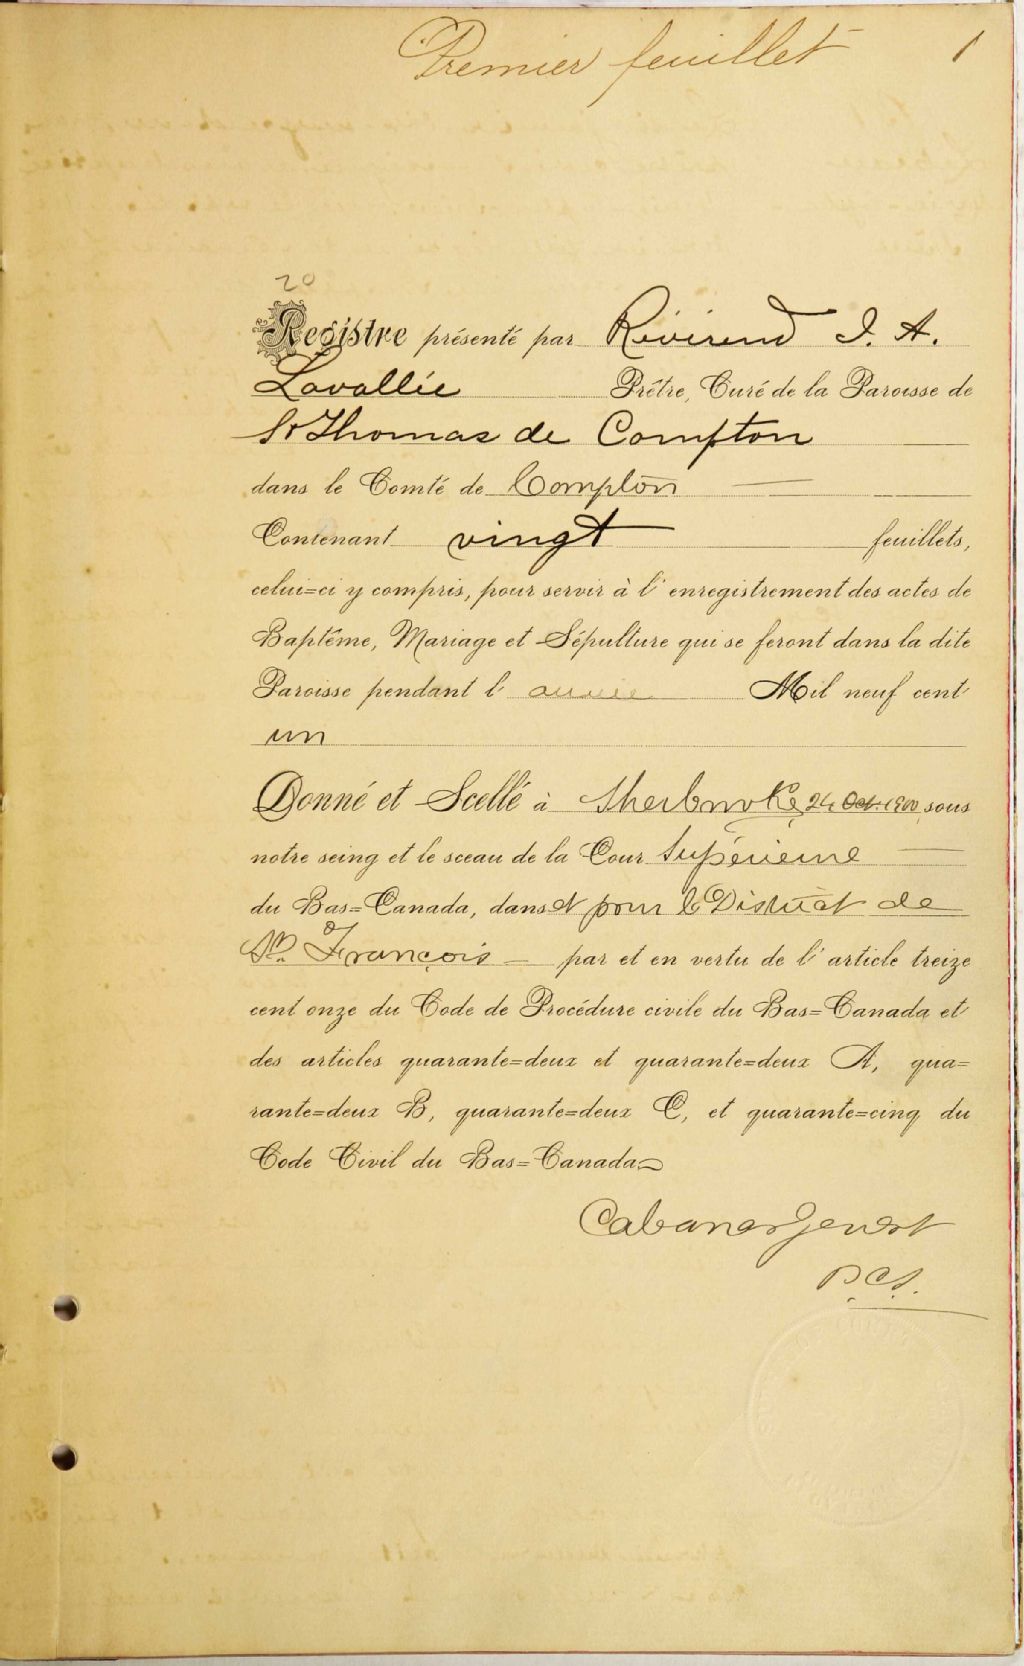 Premier feuillet 1
20
Registre présenté par Révérend J. A.
Lavallée Prêtre, Curé de la Paroisse de
St Thomas de Compton
dans le Comté de Compton
Contenant vingt feuillets,
celui=ci y compris, pour servir à l'enregistrement des actes de
Baptême, Mariage et Sépulture qui se feront dans la dite
Paroisse pendant l'année Mil neuf cent
un
Donné et Scellé à Sherbrooke, 24 Oct. 1900, sous
notre seing et le sceau de la Cour Supérieure
du Bas=Canada, dans et pour le District de
St. François par et en vertu de l'article treize
cent onze du Code de Procédure civile du Bas=Canada et
des articles quarante=deux et quarante=deux A, qua=
rante=deux B, quarante=deux C, et quarante=cinq du
Code Civil du Bas=Canada
Cabana & Genest
P.C.S.